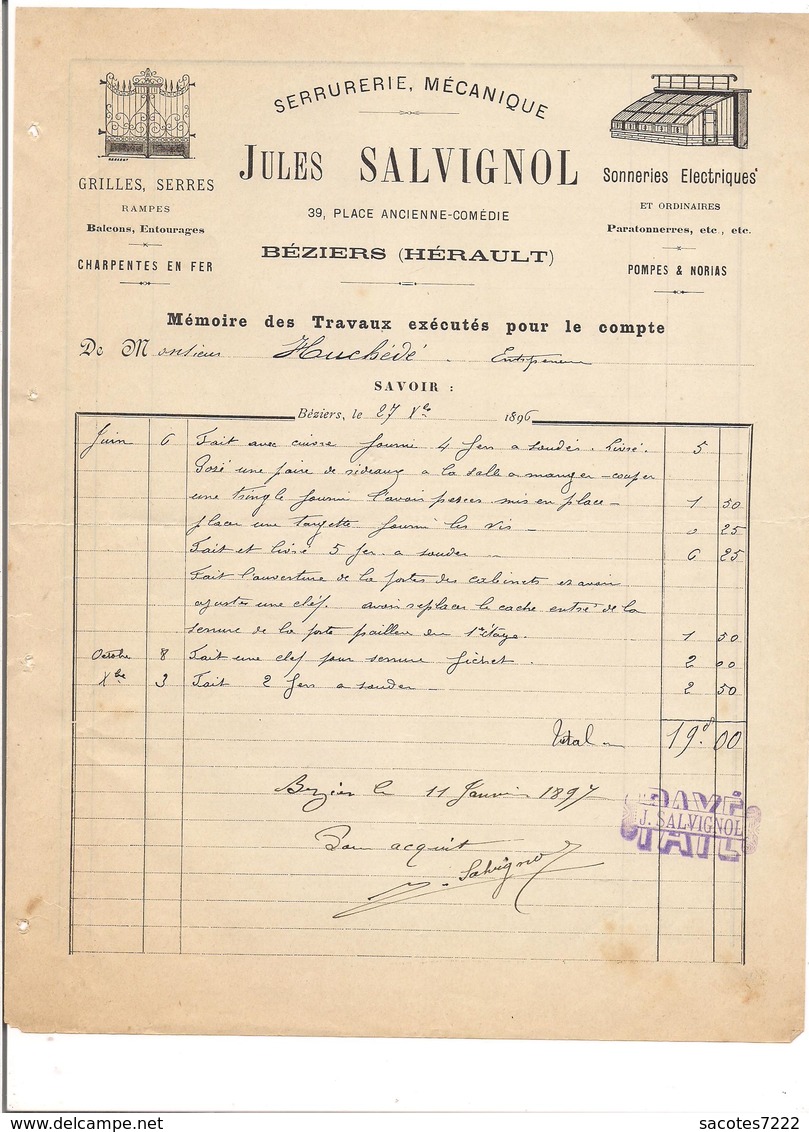 SERRURERIE, MÉCANIQUE
JULES SALVIGNOL
39, PLACE ANCIENNE-COMÉDIE
BÉZIERS (HÉRAULT)
GRILLES, SERRES
RAMPES
Balcons, Entourages
CHARPENTES EN FER
Sonneries Electriques
ET ORDINAIRES
Paratonnerres, etc., etc.
POMPES & NORIAS
Mémoire des Travaux exécutés pour le compte
De Monsieur Huchédé. Entrepreneur
SAVOIR :
Béziers, le 27 Xbe 1896
Juin 6 Fait avec cuivre fourni 4 fers a souder. livré. 5
Posé une paire de rideaux a la salle a manger - couper
une tringle fourni l'avoir percer mis en place - 1 50
placer une targette fourni les vis - 0 25
Fait et livré 5 fers a souder - 6 25
Fait l'ouverture de la portes des cabinets et avoir
ajuster une clef. avoir replacer le cache entré de la
serrure de la porte pailleur du 1er étage. 1 50
Octobre 8 Fait une clef pour serrure fichet. 2 00
Xbre 3 Fait 2 fers a souder - 2 50
Total 19f 00
Bezier le 11 Janvier 1897
Pour acquit
J. Salvignol
PAYÉ
J. SALVIGNOL
sacotes7222